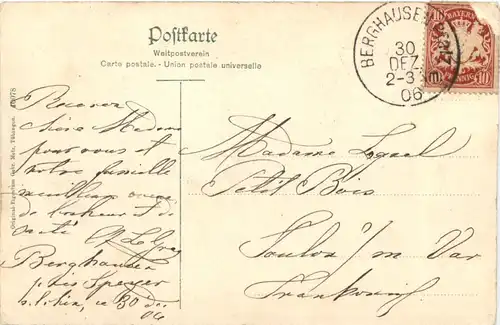 Postkarte
Weltpostverein
Carte postale. - Union postale universelle
BERGHAUSEN
30
DEZ.
2-3 Nm.
06
BAYERN
10 10
Recevez
chère Madame
pour vous et
votre famille
meilleurs voeux
de bonheur et de
santé
Berghausen
près Speyer
30
06
Madame
Petit Bois
Toulon / Var
Frankreich